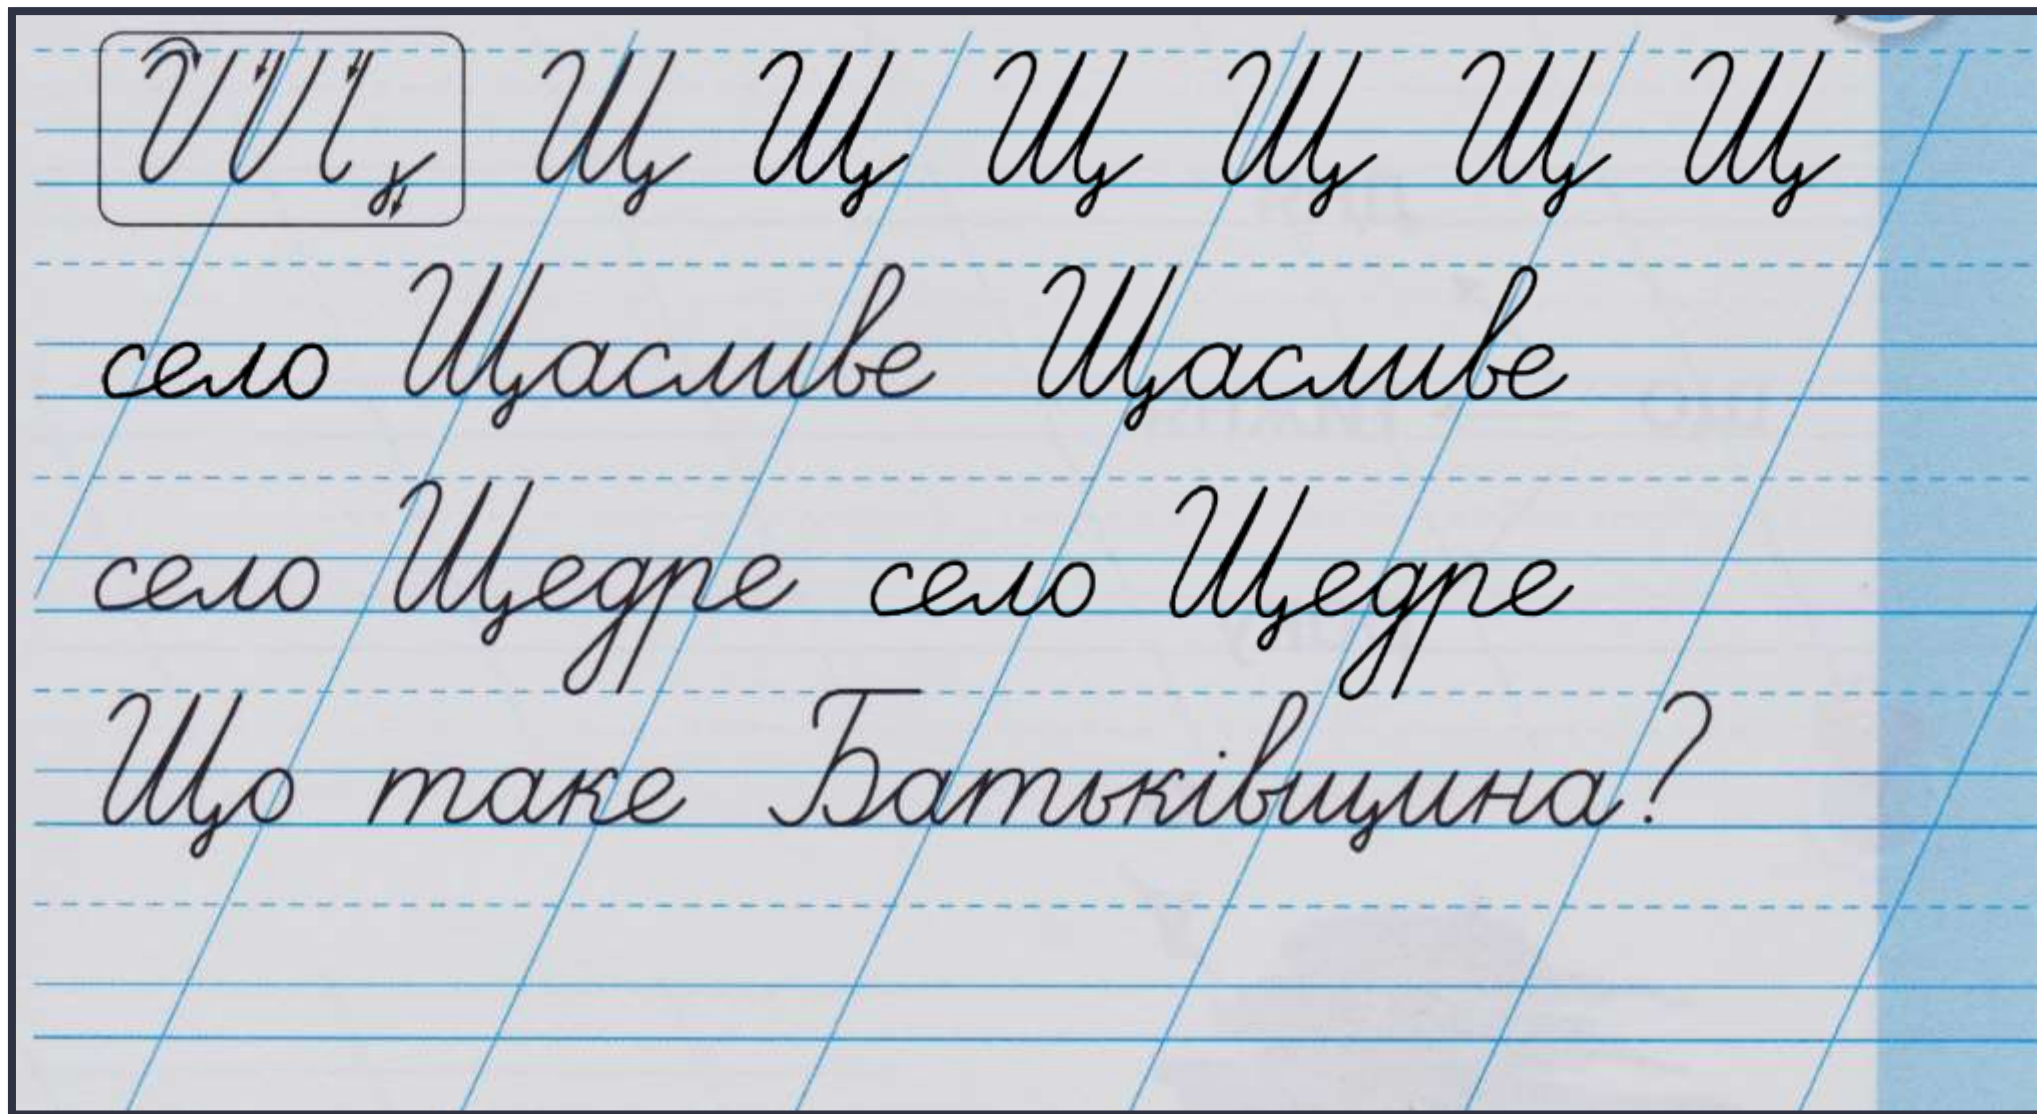 Щ Щ Щ Щ Щ Щ
село Щасливе Щасливе
село Щедре село Щедре
Що таке Батьківщина?